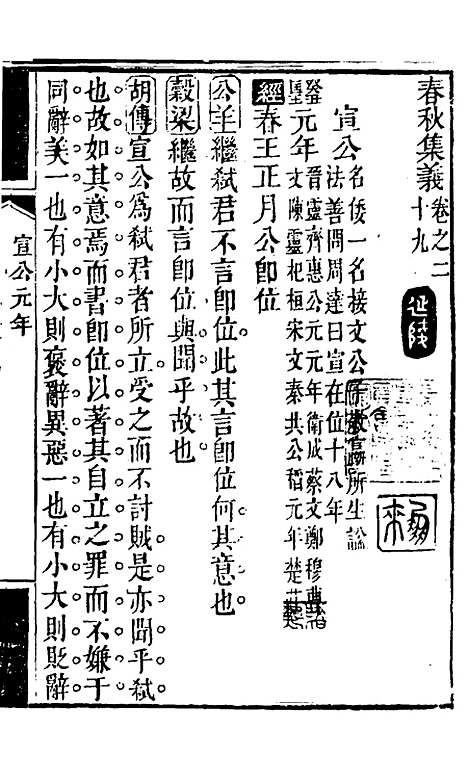 春秋集義卷之二十九
延陵
宣公名倭一名接文公所生諡
法善問周達曰宣在位十八年
元年晉靈齊惠公元年衛成蔡文鄭穆
文陳靈杞桓宋文秦共公稻元年楚莊
經春王正月公即位
公羊繼弒君不言即位此其言即位何其意也
穀梁繼故而言即位與聞乎故也
胡傳宣公爲弒君者所立受之而不討賊是亦聞乎弒
也故如其意焉而書即位以著其自立之罪而不嫌于
同辭美一也有小大則褒辭異惡一也有小大則貶辭
宣公元年